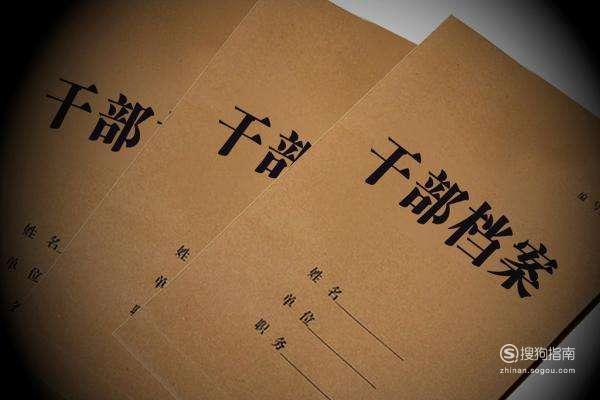 干部
姓名
单位
干部
姓
单
职
干部档案
编号
姓名
单位
职务
搜狗指南
zhinan.sogou.com